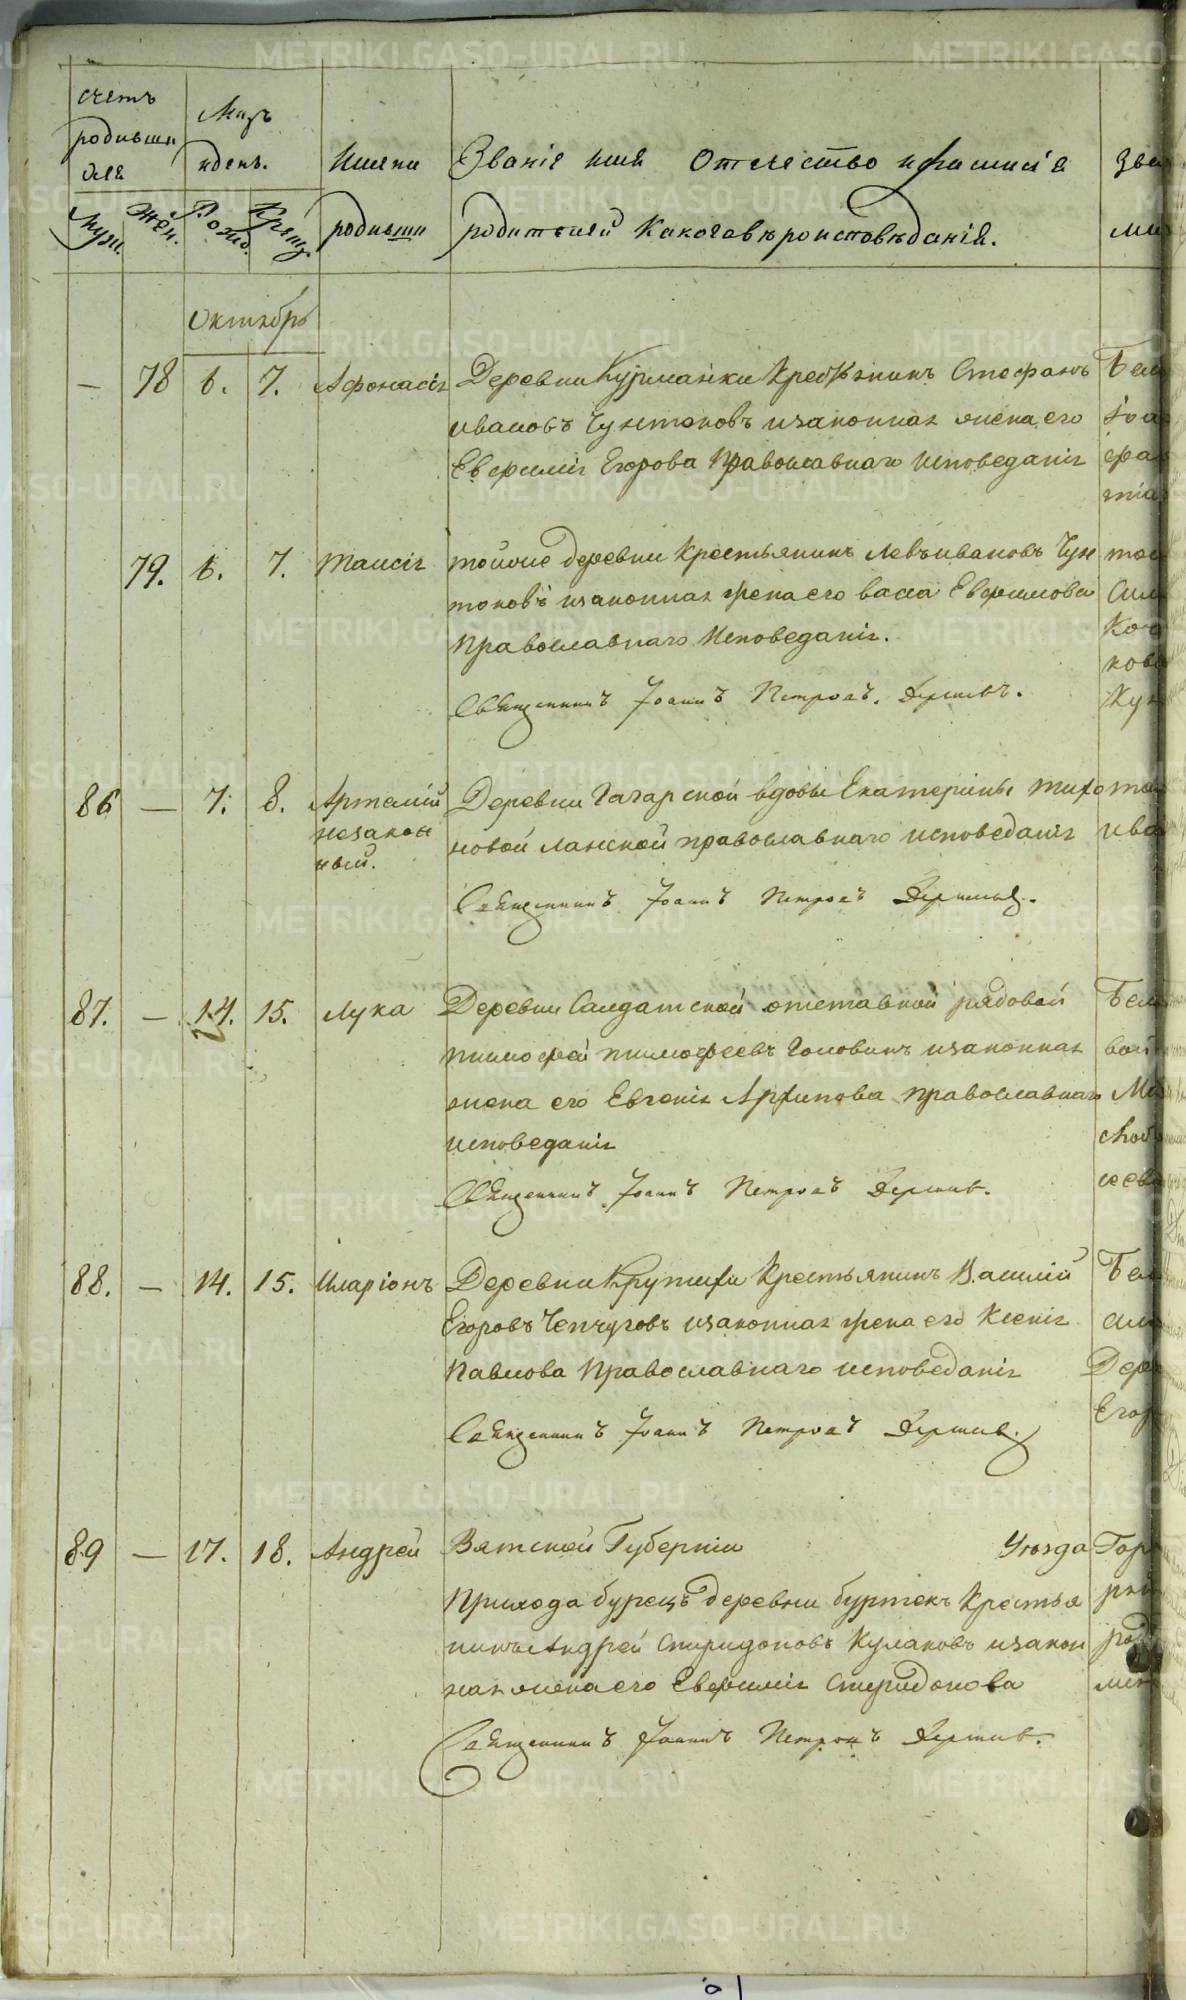 счетъ
родивши
хся
Мцъ
и день.
Имена
родивши
Званіе имя Отечество и фамилія
родителей Какого вѣроисповѣданія.
Муж.
Жен.
Рожд.
Крещ.
Октябрь
— 78 6. 7. Афонасія Деревни Курманки Крестьянинъ Стефанъ
Ивановъ Чухтоновъ и законная жена его
Евфимія Егорова Православнаго Исповеданія
79. 6. 7. Таисія тойже деревни Крестьянинъ Левъ Ивановъ Чух
тоновъ и законная жена его Васса Евфимова
Православнаго Исповеданія.
Священникъ Іоаннъ Петровъ
86 — 7. 8. Артемій незакон ный. Деревни Гагарской вдовы Екатерины Тихо
новой Ланской православнаго исповеданія
Священникъ Іоаннъ Петровъ
87. — 14. 15. Лука Деревни Салдатской отставной рядовой
Тимофей Тимофеевъ Головинъ и законная
жена его Евгенія Архипова православнаго
исповеданія
Священникъ Іоаннъ Петровъ
88. — 14. 15. Иларіонъ Деревни Крутихи Крестьянинъ Василій
Егоровъ Чепчуговъ и законная жена его Ксенія
Павлова Православнаго исповеданія
Священникъ Іоаннъ Петровъ
89 — 17. 18. Андрей Вятской Губерніи Уѣзда
Прихода бурецъ деревни буртекъ Крестья
нинъ Андрей Спиридоновъ Кулаковъ и закон
ная жена его Евфимія Спиридонова
Священникъ Іоаннъ Петровъ
METRIKI.GASO-URAL.RU